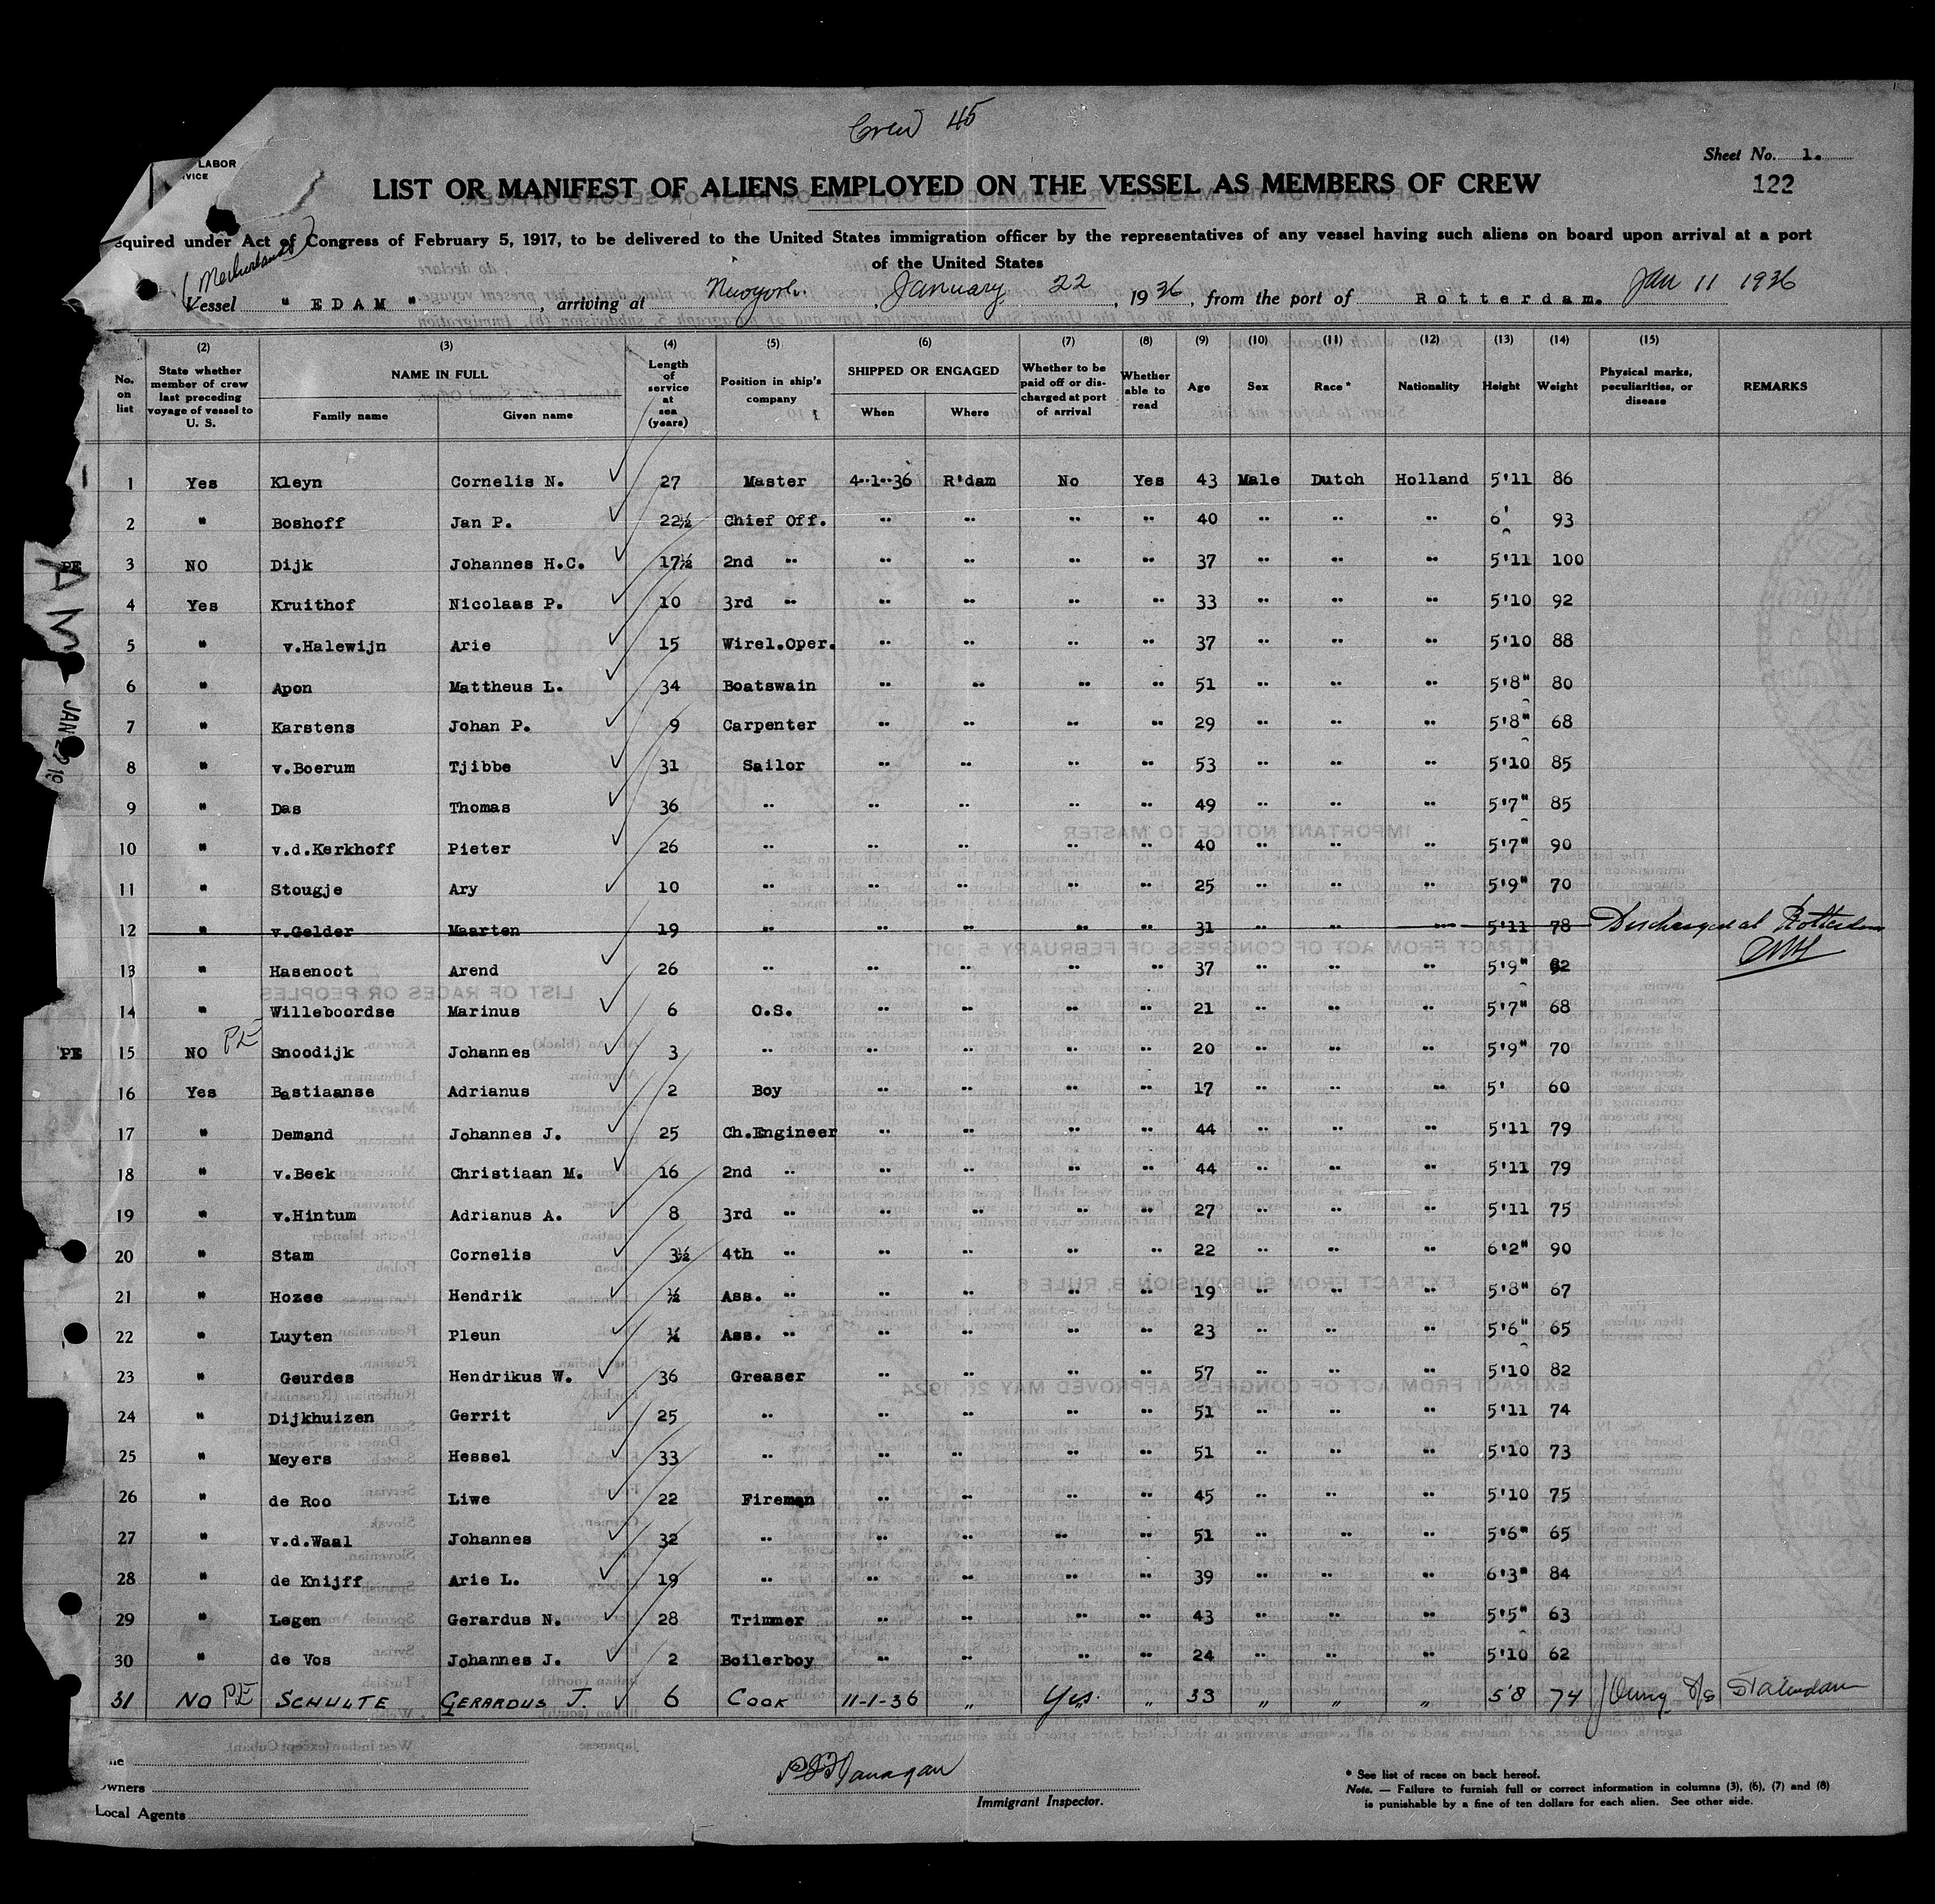 Crew 45
LABOR
VICE
Sheet No. 1.
LIST OR MANIFEST OF ALIENS EMPLOYED ON THE VESSEL AS MEMBERS OF CREW
122
equired under Act of Congress of February 5, 1917, to be delivered to the United States immigration officer by the representatives of any vessel having such aliens on board upon arrival at a port
of the United States
Vessel " EDAM " , arriving at Newyork. , January 22 , 1936 , from the port of Rotterdam. Jan 11 1936
(2) (3) (4) (5) (6) (7) (8) (9) (10) (11) (12) (13) (14) (15)
No. on list State whether member of crew last preceding voyage of vessel to U. S. NAME IN FULL Family name Given name Length of service at sea (years) Position in ship's company SHIPPED OR ENGAGED When Where Whether to be paid off or discharged at port of arrival Whether able to read Age Sex Race * Nationality Height Weight Physical marks, peculiarities, or disease REMARKS
1 Yes Kleyn Cornelis N. 27 Master 4-1-36 R'dam No Yes 43 Male Dutch Holland 5'11 86
2 " Boshoff Jan P. 22½ Chief Off. " " " " 40 " " " 6' 93
PE 3 NO Dijk Johannes H.C. 17½ 2nd " " " " " 37 " " " 5'11 100
4 Yes Kruithof Nicolaas P. 10 3rd " " " " " 33 " " " 5'10 92
5 " v.Halewijn Arie 15 Wirel.Oper. " " " " 37 " " " 5'10 88
6 " Apon Mattheus L. 34 Boatswain " " " " 51 " " " 5'8" 80
7 " Karstens Johan P. 9 Carpenter " " " " 29 " " " 5'8" 68
8 " v.Boerum Tjibbe 31 Sailor " " " " 53 " " " 5'10 85
9 " Das Thomas 36 " " " " " 49 " " " 5'7" 85
10 " v.d.Kerkhoff Pieter 26 " " " " " 40 " " " 5'7" 90
11 " Stougje Ary 10 " " " " " 25 " " " 5'9" 70
12 " v.Gelder Maarten 19 " " " " " 31 " " " 5'11 78 Discharged at Rotterdam
13 " Hasenoot Arend 26 " " " " " 37 " " " 5'9" 82
14 " Willeboordse Marinus 6 O.S. " " " " 21 " " " 5'7" 68
PE 15 NO PE Snoodijk Johannes 3 " " " " " 20 " " " 5'9" 70
16 Yes Bastiaanse Adrianus 2 Boy " " " " 17 " " " 5' 60
17 " Demand Johannes J. 25 Ch.Engineer " " " " 44 " " " 5'11 79
18 " v.Beek Christiaan M. 16 2nd " " " " " 44 " " " 5'11 79
19 " v.Hintum Adrianus A. 8 3rd " " " " " 27 " " " 5'11 75
20 " Stam Cornelis 3½ 4th " " " " " 22 " " " 6'2" 90
21 " Hozee Hendrik ½ Ass. " " " " " 19 " " " 5'8" 67
22 " Luyten Pleun ¼ Ass. " " " " " 23 " " " 5'6" 65
23 " Geurdes Hendrikus W. 36 Greaser " " " " 57 " " " 5'10 82
24 " Dijkhuizen Gerrit 25 " " " " " 51 " " " 5'11 74
25 " Meyers Hessel 33 " " " " " 51 " " " 5'10 73
26 " de Roo Liwe 22 Fireman " " " " 45 " " " 5'10 75
27 " v.d.Waal Johannes 32 " " " " " 51 " " " 5'6" 65
28 " de Knijff Arie L. 19 " " " " " 39 " " " 6'3" 84
29 " Legen Gerardus N. 28 Trimmer " " " " 43 " " " 5'5" 63
30 " de Vos Johannes J. 2 Boilerboy " " " " 24 " " " 5'10 62
31 NO PE SCHULTE GERARDUS J. 6 COOK 11-1-36 " Yes. " 33 " " " 5'8 74 S/S Statendam
wners
Local Agents
Immigrant Inspector.
* See list of races on back hereof.
Note. — Failure to furnish full or correct information in columns (3), (6), (7) and (8)
is punishable by a fine of ten dollars for each alien. See other side.